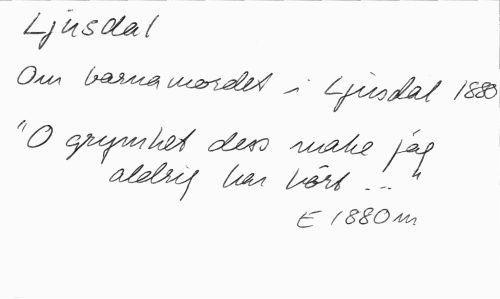 Ljusdal
Om barnamordet i Ljusdal 1880
"O grymhet dess make jag
aldrig har hört ..."
E 1880 m